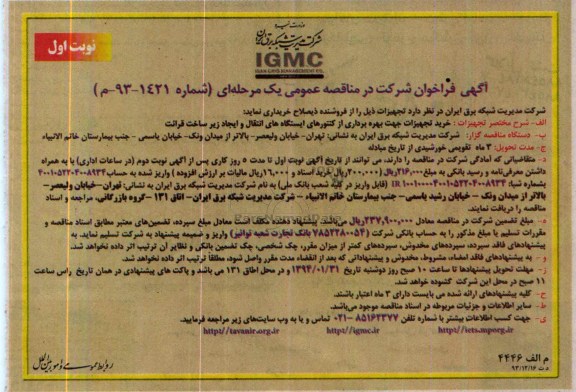 وزارت نیرو
شرکت مدیریت شبکه برق ایران
نوبت اول
IGMC
IRAN GRID MANAGEMENT CO.
آگهی فراخوان شرکت در مناقصه عمومی یک مرحله‌ای (شماره ۱۴۲۱-۹۳-م)
شرکت مدیریت شبکه برق ایران در نظر دارد تجهیزات ذیل را از فروشنده ذیصلاح خریداری نماید:
الف - شرح مختصر تجهیزات: خرید تجهیزات جهت بهره برداری از کنتورهای ایستگاه های انتقال و ایجاد زیر ساخت قرائت
ب- دستگاه مناقصه گزار: شرکت مدیریت شبکه برق ایران به نشانی: تهران- خیابان ولیعصر- بالاتر از میدان ونک- خیابان یاسمی - جنب بیمارستان خاتم الانبیاء
ج- مدت تحویل: ۳ ماه تقویمی خورشیدی از تاریخ مبادله
د- متقاضیانی که آمادگی شرکت در مناقصه را دارند، می توانند از تاریخ آگهی نوبت اول تا مدت ۵ روز کاری پس از آگهی نوبت دوم (در ساعات اداری) با به همراه
داشتن معرفی‌نامه و رسید بانکی به مبلغ ۲۱۶,۰۰۰ریال (۲۰۰,۰۰۰ریال خرید اسناد و ۱۶,۰۰۰ریال مالیات بر ارزش افزوده) واریز شده به حساب ۴۰۰۱۰۵۲۲۰۴۰۰۸۹۳۴
بشماره شبا: IR ۱۰۰۱۰۰۰۰۴۰۰۱۰۵۲۲۰۴۰۰۸۹۳۴ (قابل واریز در کلیه شعب بانک ملی) به نام شرکت مدیریت شبکه برق ایران به نشانی: تهران- خیابان ولیعصر-
بالاتر از میدان ونک- خیابان رشید یاسمی- جنب بیمارستان خاتم الانبیاء - شرکت مدیریت شبکه برق ایران- اتاق ۱۳۱ -گروه بازرگانی، مراجعه و اسناد
مناقصه را دریافت نمایند.
ه- مبلغ تضمین شرکت در مناقصه معادل ۲۳۷,۹۰۰,۰۰۰ریال می‌باشد. پیشنهاد دهنده مکلف است معادل مبلغ سپرده، تضمین‌های معتبر مطابق اسناد مناقصه و
مقررات تسلیم یا مبلغ مذکور را به حساب بانکی شرکت (۷۸۵۲۳۸۰۰۵۴ بانک تجارت شعبه توانیر) واریز و ضمیمه پیشنهاد به شرکت تسلیم نماید. به
پیشنهادهای فاقد سپرده، سپرده‌های مخدوش، سپرده‌های کمتر از میزان مقرر، چک شخصی، چک تضمین بانکی و نظایر آن ترتیب اثر داده نخواهد شد.
و- به پیشنهادهای فاقد امضاء، مشروط، مخدوش و پیشنهاداتی که بعد از انقضاء مدت مقرر واصل شود، مطلقاً ترتیب اثر داده نخواهد شد.
ز- مهلت تحویل پیشنهادها تا ساعت ۱۰ صبح روز دوشنبه تاریخ ۱۳۹۴/۰۱/۳۱ و در محل اطاق ۱۳۱ می باشد و پاکت های پیشنهادی در همان تاریخ راس ساعت
۱۱ صبح در محل این شرکت گشوده خواهد شد.
ح- کلیه پیشنهادهای ارائه شده می بایست دارای ۳ ماه اعتبار باشند.
ط- سایر اطلاعات و جزئیات مربوطه در اسناد مناقصه موجود می‌باشد.
ی- جهت کسب اطلاعات بیشتر با شماره تلفن ۸۵۱۶۲۳۷۷ -۰۲۱ تماس و یا به وب سایت‌های زیر مراجعه فرمایید.
http://iets.mporg.ir http://igmc.ir http://tavanir.org.ir
م الف ۴۴۴۶
۹۳/۱۲/۱۶
روابط عمومی و امور بین الملل